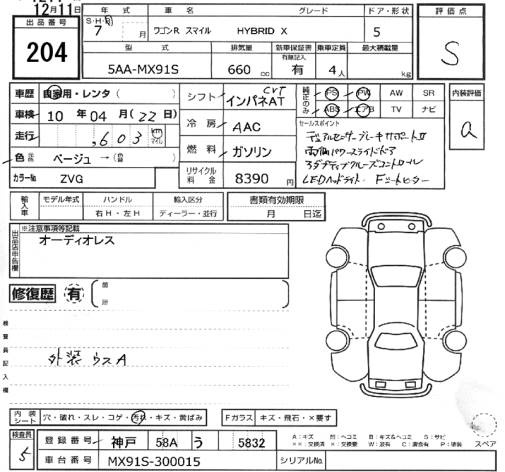 12月11日
出品番号
204
年式
S・H・R
7 月
ワゴンR スマイル HYBRID X
グレード
ドア・形状
5
評価点
S
型式
5AA-MX91S
排気量
660 cc
新車保証書
有無記入
有
乗車定員
4人
最大積載量
kg
車歴 自家用・レンタ( )
車検 10年04月(22日)
走行 ,603 km マイル
色 ベージュ→( )
カラー№ ZVG
シフト CVT インパネAT
冷房 AAC
燃料 ガソリン
リサイクル料金 8390円
純正のみ
PS PW AW SR
ABS エアB TV ナビ
内装評価
a
セールスポイント
デュアルセンサーブレーキサポートⅡ
両側パワースライドドア
アダプティブクルーズコントロール
LEDヘッドライト Fシートヒーター
輸入車
モデル年式
ハンドル
右H・左H
輸入区分
ディーラー・並行
書類有効期限
月 日迄
出品店申告欄
※注意事項等記載
オーディオレス
修復歴 有
箇所
検査員記入欄
外装 ウスA
内装シート 穴・破れ・スレ・コゲ・汚れ・キズ・黄ばみ
Fガラス キズ・飛石・×要す
検査員
5
登録番号 神戸 58A う 5832
車台番号 MX91S-300015
シリアルNo.
A:キズ M:ヘコミ B:キズ&ヘコミ S:サビ
××:交換済 ×:要交換 W:波 C:腐食 P:塗装
スペア